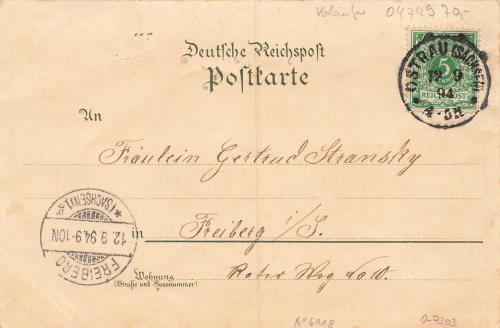 Vorläufer 04749 70,-
Deutsche Reichspost
Postkarte
5
REICHSPOST
OSTRAU (SACHSEN)
12 9
94
4-5N
An
Fräulein Gertrud Stransky
in Freiberg i/S.
Wohnung
(Straße und Hausnummer)
Roter Weg
FREIBERG
12.9.94.9-10N
*(SACHSEN)1.*
No 6918
0-7303